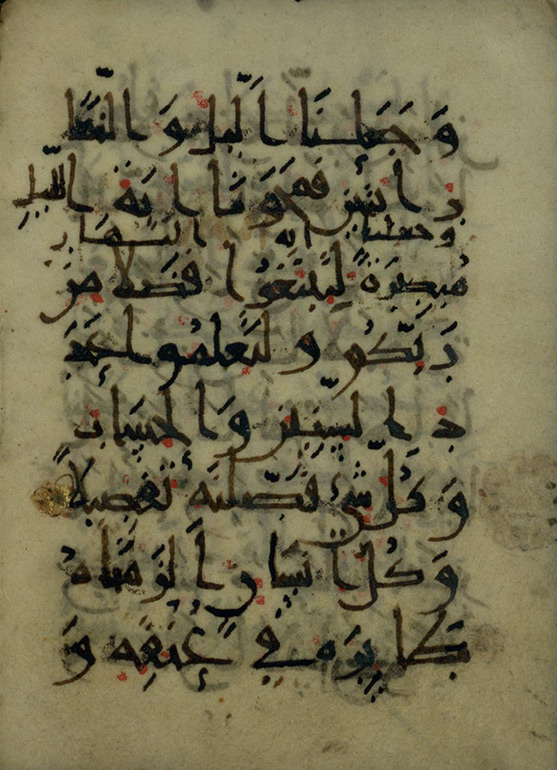 وَجَعَلْنَا الَّيْلَ وَالنَّهَا
ر ايتين فمحونا اية الليل
وجعلنا اية النهار
مُبصِرَةً لِّتَبْتَغُوا فَضْلًا مِن
رَبِّكُم وَلِتَعْلَمُوا عَدَ
دَ السِّنِينَ وَالْحِسَابَ
وَكُلَّ شَيْءٍ فَصَّلْنَه تَفْصِيلًا
وَكُلَّ اِنسَانٍ اَلْزَمْنَه
طائرَه فِي عُنُقِه وَ